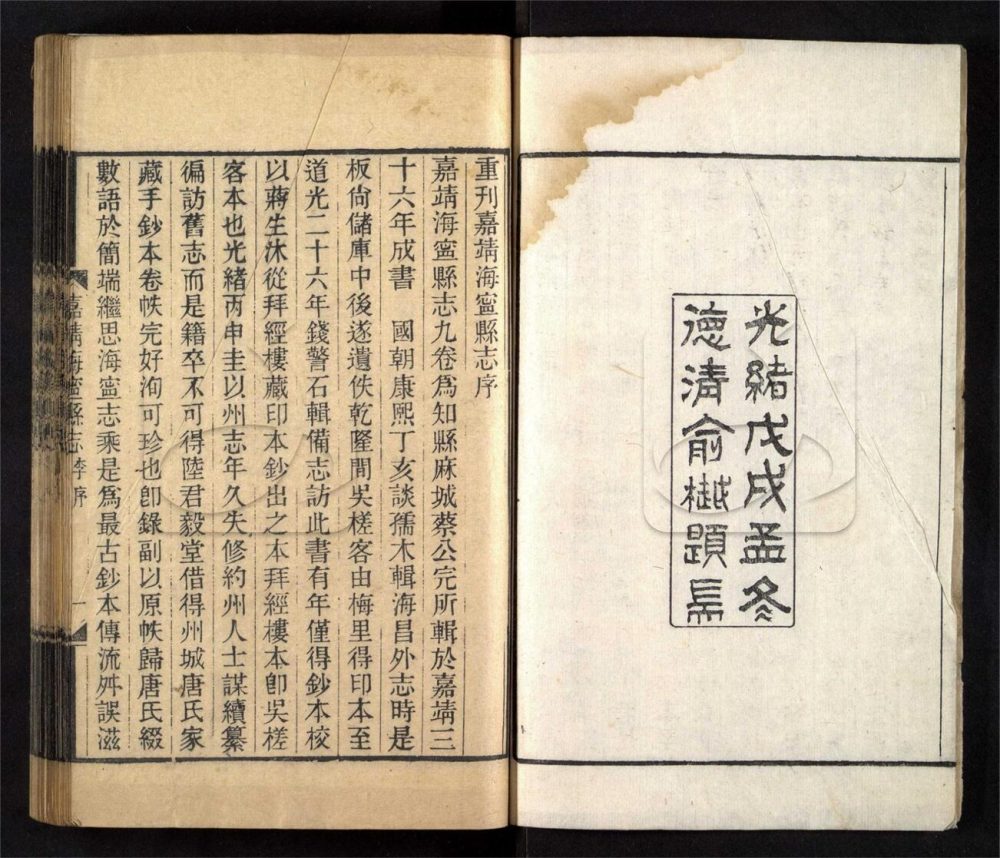 光緒戊戌孟冬
德清俞樾題耑
重刊嘉靖海寧縣志序
嘉靖海寧縣志九卷爲知縣麻城蔡公完所輯於嘉靖三
十六年成書　國朝康熙丁亥談孺木輯海昌外志時是
板尙儲庫中後遂遺佚乾隆間吳槎客由梅里得印本至
道光二十六年錢警石輯備志訪此書有年僅得鈔本校
以蔣生沐從拜經樓藏印本鈔出之本拜經樓本卽吳槎
客本也光緒丙申圭以州志年久失修約州人士謀續纂
徧訪舊志而是籍卒不可得陸君毅堂借得州城唐氏家
藏手鈔本卷帙完好洵可珍也卽錄副以原帙歸唐氏綴
數語於簡端繼思海寧志乘是爲最古鈔本傳流舛誤滋
嘉靖海寧縣志 李序 一